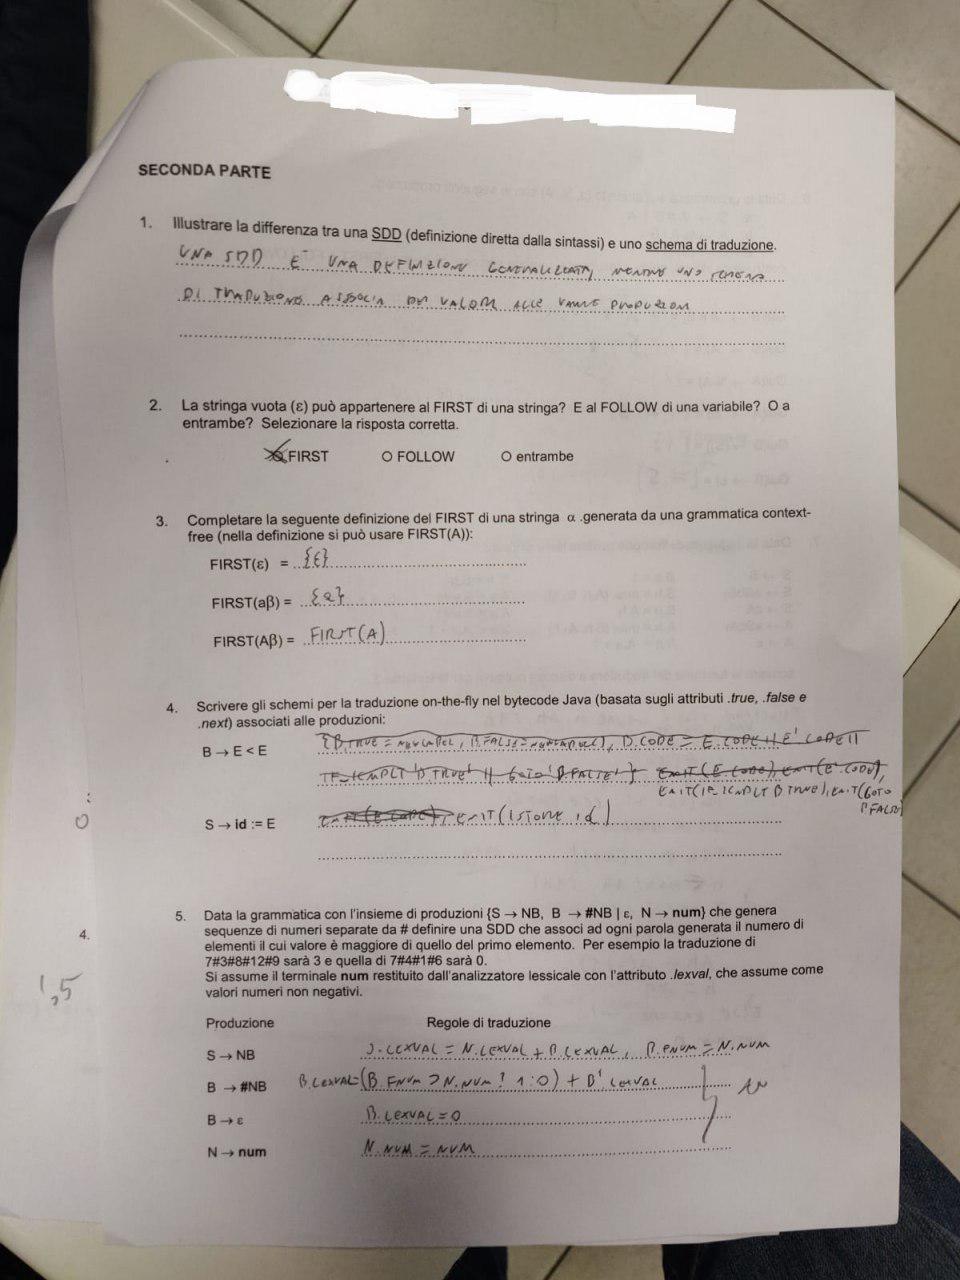 SECONDA PARTE
1. Illustrare la differenza tra una SDD (definizione diretta dalla sintassi) e uno schema di traduzione.
UNA SDD E' UNA DEFINIZIONE GENERALIZZATA, MENTRE UNO SCHEMA
DI TRADUZIONE ASSOCIA DEI VALORI ALLE VARIE PRODUZIONI
2. La stringa vuota (ε) può appartenere al FIRST di una stringa? E al FOLLOW di una variabile? O a
entrambe? Selezionare la risposta corretta.
FIRST O FOLLOW O entrambe
3. Completare la seguente definizione del FIRST di una stringa α .generata da una grammatica context-
free (nella definizione si può usare FIRST(A)):
FIRST(ε) = {ε}
FIRST(aβ) = {a}
FIRST(Aβ) = FIRST(A)
4. Scrivere gli schemi per la traduzione on-the-fly nel bytecode Java (basata sugli attributi .true, .false e
.next) associati alle produzioni:
B → E < E {B.TRUE = NEWLABEL, B.FALSE = NEWLABEL(), B.CODE = E.CODE || E'.CODE ||
IF_ICMPLT 'B.TRUE' || GOTO 'B.FALSE'} EMIT(E.CODE), EMIT(E'.CODE),
EMIT(IF_ICMPLT B.TRUE), EMIT(GOTO
B.FALSE)
0
S → id := E EMIT(E.CODE), EMIT(ISTORE id)
5. Data la grammatica con l'insieme di produzioni {S → NB, B → #NB | ε, N → num} che genera
4.
sequenze di numeri separate da # definire una SDD che associ ad ogni parola generata il numero di
elementi il cui valore è maggiore di quello del primo elemento. Per esempio la traduzione di
7#3#8#12#9 sarà 3 e quella di 7#4#1#6 sarà 0.
Si assume il terminale num restituito dall'analizzatore lessicale con l'attributo .lexval, che assume come
valori numeri non negativi.
1,5
Produzione Regole di traduzione
S → NB S.LEXVAL = N.LEXVAL + B.LEXVAL, B.FNUM = N.NUM
B → #NB B.LEXVAL=(B.FNUM > N.NUM ? 1:0) + B'.LEXVAL
B → ε B.LEXVAL = 0
N → num N.NUM = NUM